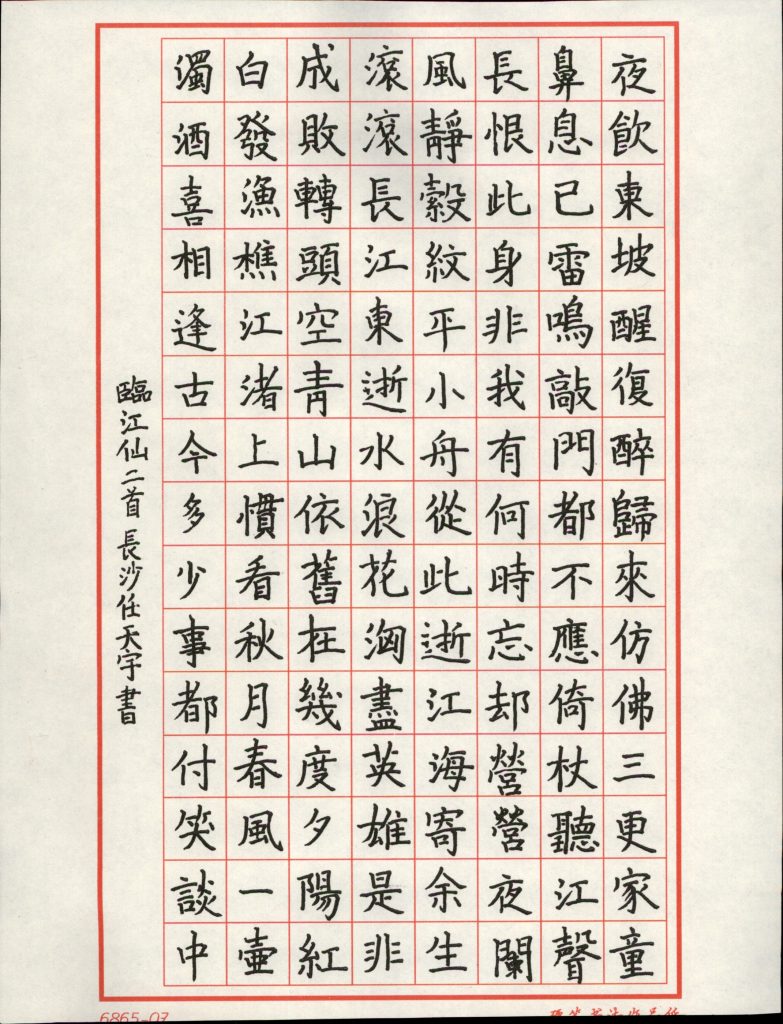 夜飲東坡醒復醉歸來仿佛三更家童
鼻息已雷鳴敲門都不應倚杖聽江聲
長恨此身非我有何時忘却營營夜闌
風靜縠紋平小舟從此逝江海寄余生
滾滾長江東逝水浪花淘盡英雄是非
成敗轉頭空青山依舊在幾度夕陽紅
白發漁樵江渚上慣看秋月春風一壺
濁酒喜相逢古今多少事都付笑談中
臨江仙二首 長沙任天宇書
6865-07